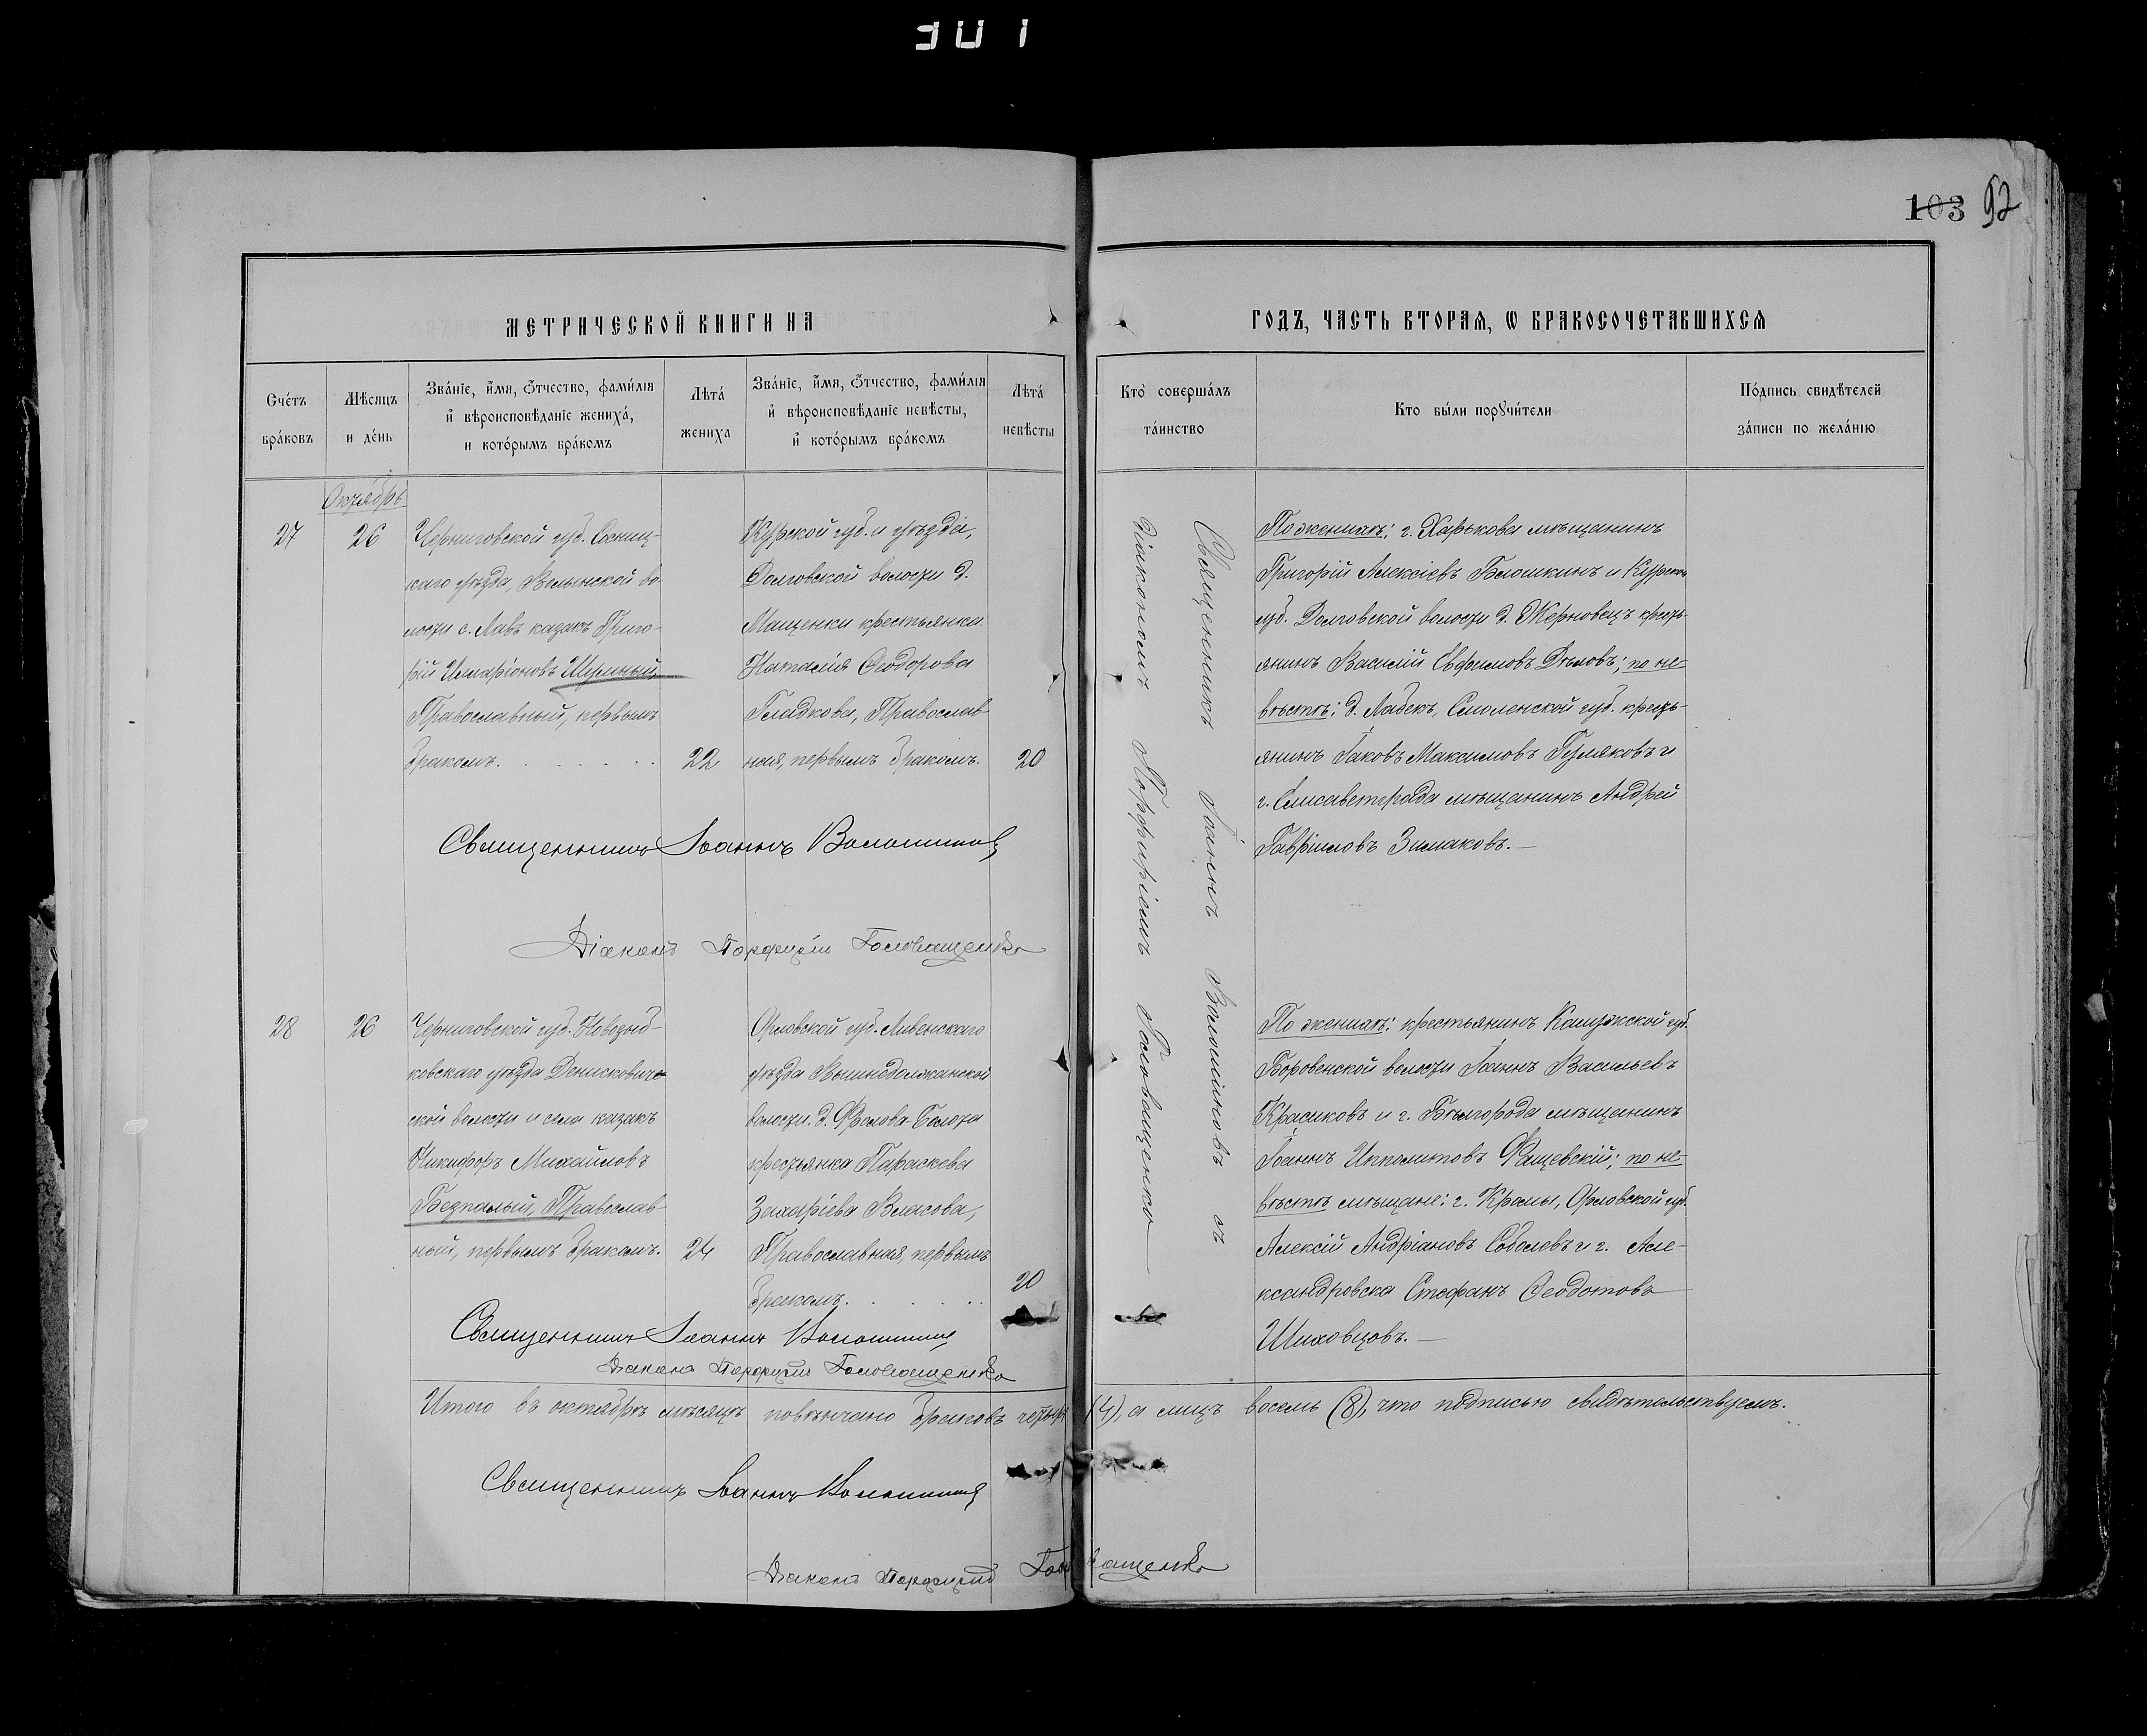 301
103 92
МЕТРИЧЕСКОЙ КНИГИ НА
ГОДЪ, ЧАСТЬ ВТОРАЯ, Ѡ БРАКОСОЧЕТАВШИХСЯ
Счетъ браковъ
Мѣсяцъ и день
Званіе, имя, ѿчество, фамилія
и вѣроисповѣданіе жениха,
и которымъ бракомъ
Лѣта жениха
Званіе, имя, ѿчество, фамилія
и вѣроисповѣданіе невѣсты,
и которымъ бракомъ
Лѣта невѣсты
Кто совершалъ таинство
Кто были порꙋчители
Подпись свидѣтелей
записи по желанію
Октябрь
27
26
Черниговской губ. Сосниц-
каго уѣзда, Волынской во-
лости с. Лавъ казакъ Григо-
рій Иларіоновъ
Православный, первымъ
бракомъ.
22
Курской губ. и уѣзда,
Долговской волости д.
Мащенки крестьянка
Наталія Ѳеодорова
Гладкова, Православ-
ная, первымъ бракомъ.
20
Священникъ Іоаннъ Волошиновъ съ
діакономъ Порфиріемъ Головащенко
По женихѣ: г. Харькова мѣщанинъ
Григорій Алексіевъ Блошкинъ и Курской
губ. Долговской волости д. Жерновецъ кресть-
янинъ Василій Евфимовъ Дѣловъ; по не-
вѣстѣ: д. Ладекъ, Смоленской губ. кресть-
янинъ Іаковъ Максимовъ Гузляковъ и
г. Елисаветграда мѣщанинъ Андрей
Гавріиловъ Зимаковъ.—
Священникъ Іоаннъ Волошиновъ
Діаконъ Порфирій Головащенко
28
26
Черниговской губ. Новозыб-
ковскаго уѣзда Денискович-
ской волости и села казакъ
Никифоръ Михайловъ
Безпалый, Православ-
ный, первымъ бракомъ.
24
Орловской губ. Ливенскаго
уѣзда Вышнедолжанской
волости, д. Болота
крестьянка Параскева
Захаріева Власова,
Православная, первымъ
бракомъ.
20
По женихѣ: крестьянинъ Калужской губ.
Боровенской волости Іоаннъ Васильевъ
Красиковъ и г. Бѣлгорода мѣщанинъ
Іоаннъ Ипполитовъ Фащевскій; по не-
вѣстѣ мѣщане: г. Кромы, Орловской губ.
Алексій Андріановъ Соболевъ и г. Але-
ксандровска Стефанъ Ѳеодотовъ
Шиховцовъ.—
Священникъ Іоаннъ Волошиновъ
Діаконъ Порфирій Головащенко
Итого въ октябрѣ мѣсяцѣ повѣнчано браковъ четыре (4), а лицъ восемь (8), что подписью свидѣтельствуемъ.
Священникъ Іоаннъ Волошиновъ
Діаконъ Порфирій Головащенко